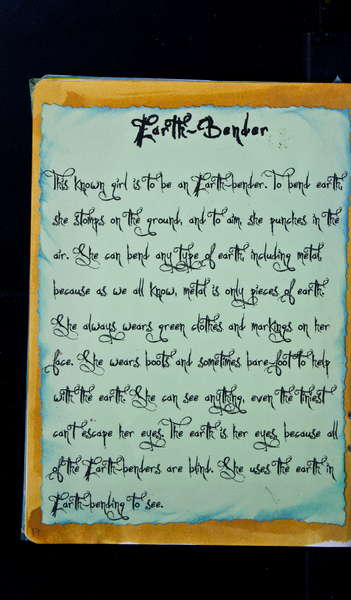 Earth-Bender
This known girl is to be an Earth-bender. To bend earth,
she stomps on the ground, and to aim, she punches in the
air. She can bend any type of earth, including metal,
because as we all know, metal is only pieces of earth.
She always wears green clothes and markings on her
face. She wears boots and sometimes bare-foot to help
with the earth. She can see anything, even the tiniest
can't escape her eyes. The earth is her eyes, because all
of the Earth-benders are blind. She uses the earth in
Earth-bending to see.